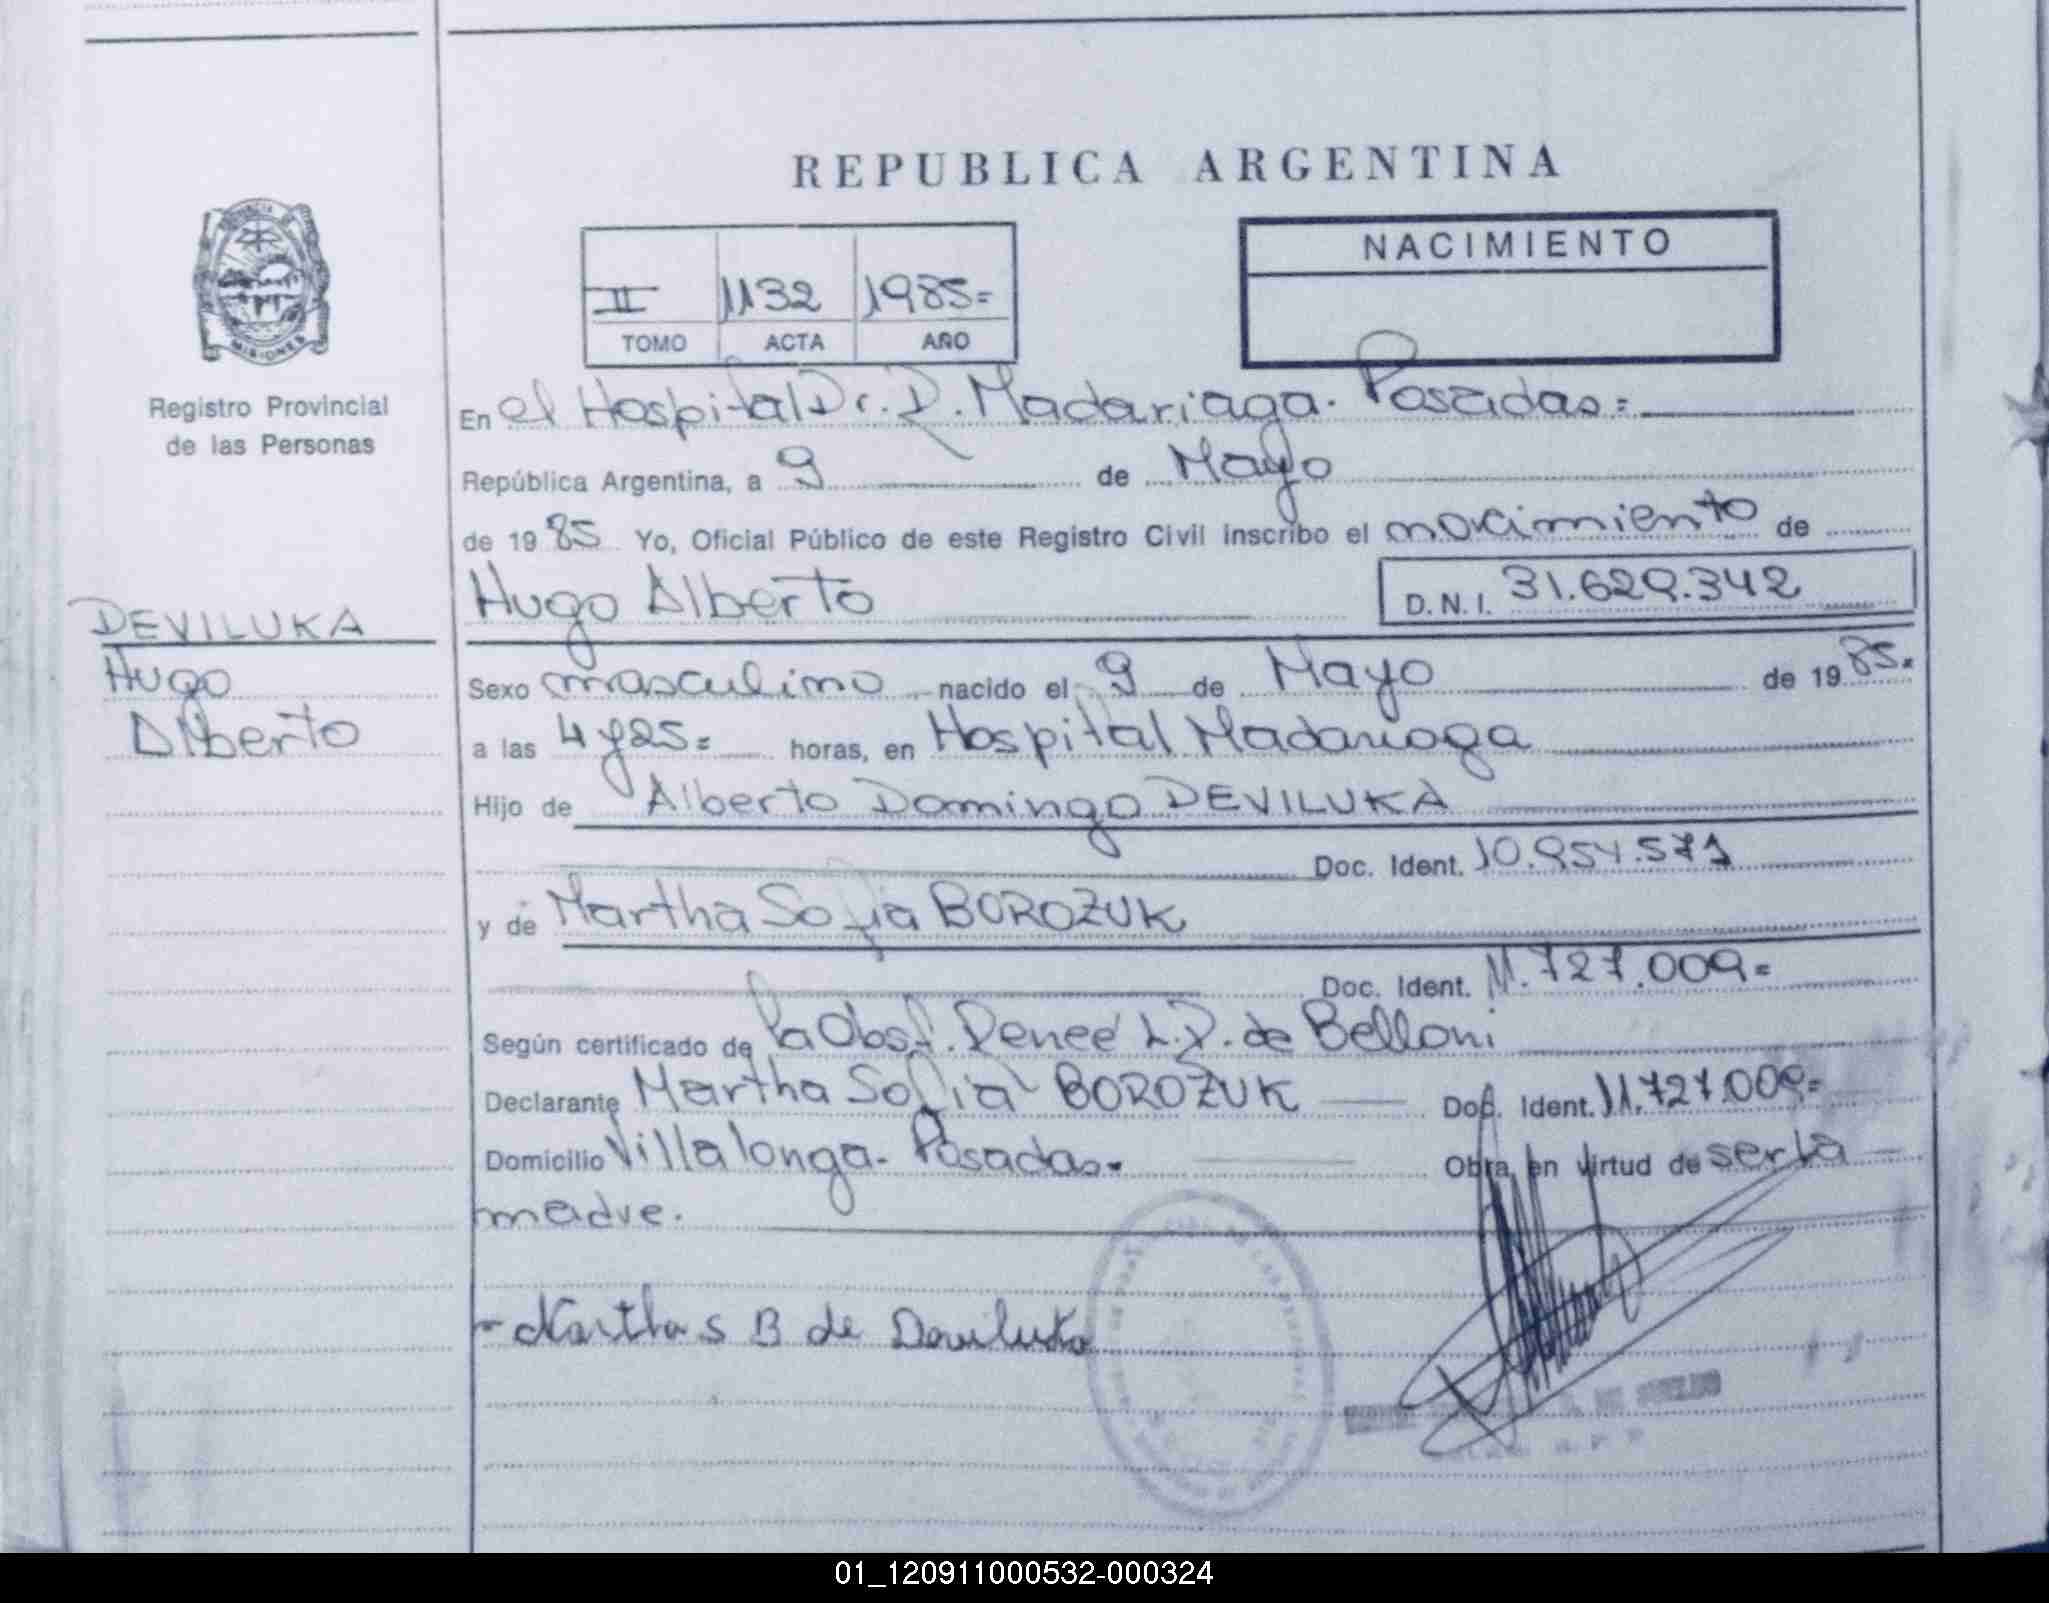 REPUBLICA ARGENTINA
NACIMIENTO
II 1132 1985=
TOMO ACTA AÑO
MISIONES
Registro Provincial
de las Personas
En el Hospital Dr. R. Madariaga. Posadas=
República Argentina, a 9 de Mayo
de 1985 Yo, Oficial Público de este Registro Civil inscribo el nacimiento de
Hugo Alberto D.N.I. 31.629.342
DEVILUKA
Hugo
Alberto
Sexo masculino nacido el 9 de Mayo de 1985.
a las 4 y 25= horas, en Hospital Madariaga
Hijo de Alberto Domingo DEVILUKA
Doc. Ident. 10.954.571
y de Martha Sofia BOROZUK
Doc. Ident. 11.727.009=
Según certificado de la Obst. Reneé L. R. de Belloni
Declarante Martha Sofia BOROZUK Doc. Ident. 11.727.009=
Domicilio Villalonga- Posadas- Obra en virtud de ser la
madre.
- Martha S B de Deviluka
01_120911000532-000324